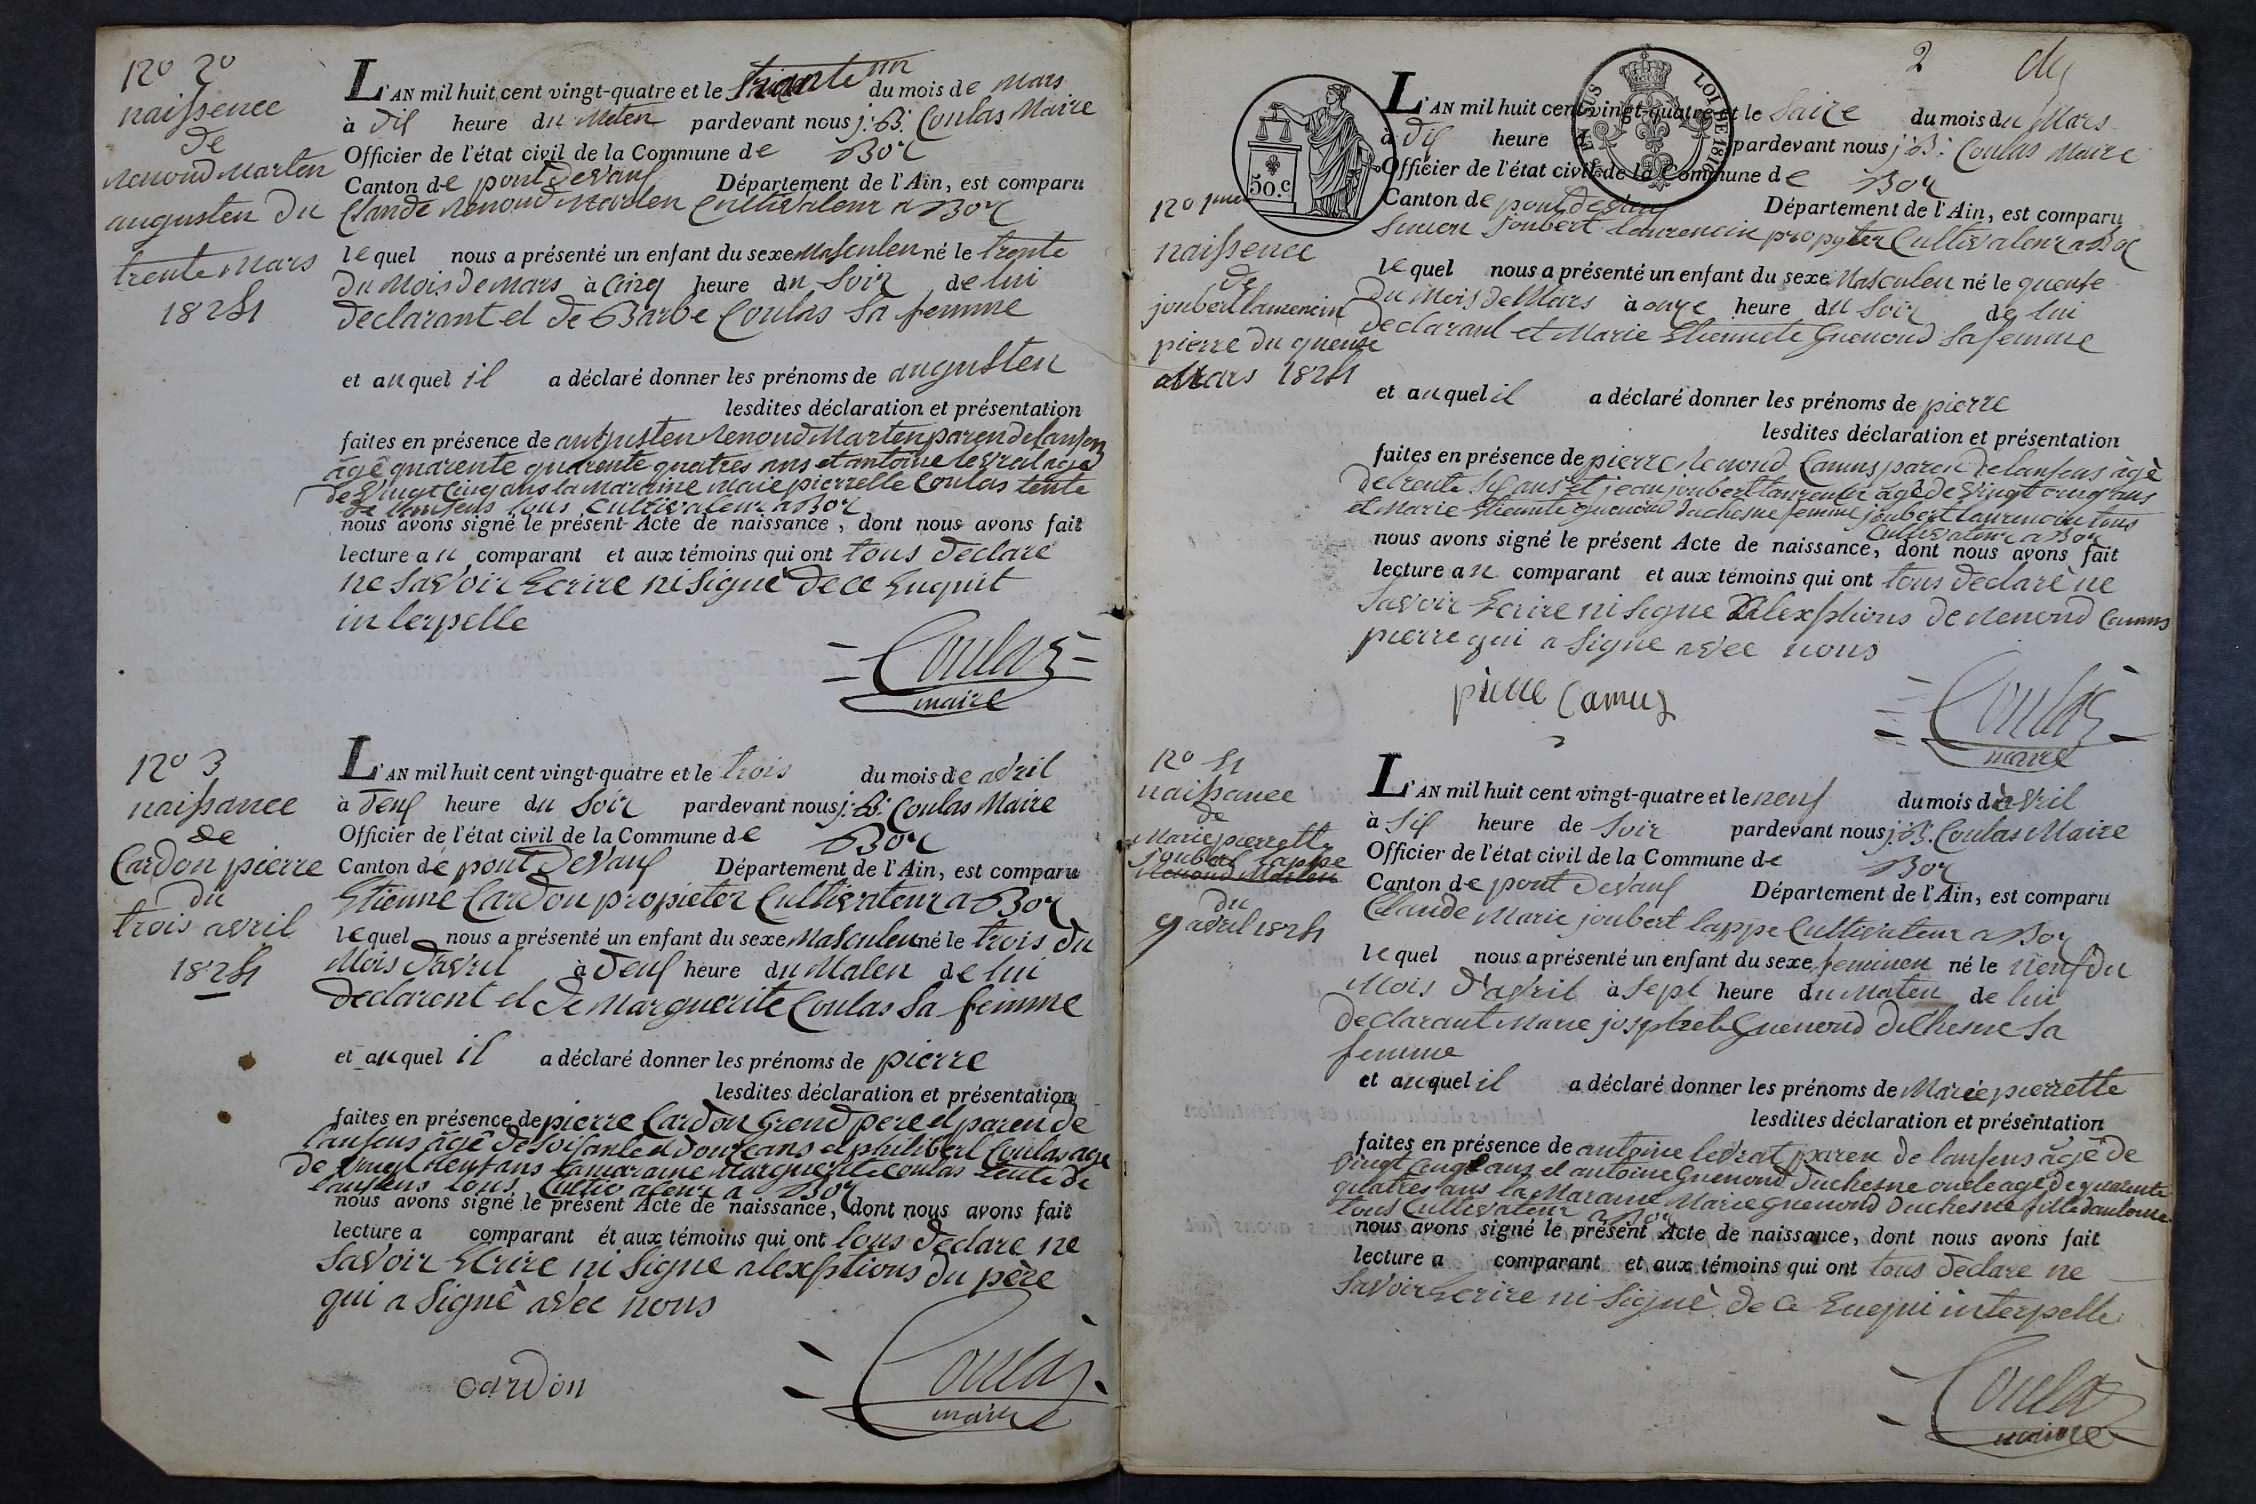 No 2o
naissence
de
Renoud Marten
augusten du
trente Mars
1824
L'AN mil huit cent vingt-quatre et le trante un du mois de Mars
à dix heure du Meten pardevant nous j: B: Coulas Maire
Officier de l'état civil de la Commune de Boz
Canton de pont devaux Département de l'Ain, est comparu
Claude Renoud Marten Cultivateur a Boz
lequel nous a présenté un enfant du sexe Masculen né le trente
du Mois de Mars à Cinq heure du Soir de lui
declarant et de Barbe Coulas Sa femme
et auquel il a déclaré donner les prénoms de augusten
lesdites déclaration et présentation
faites en présence de augusten Renoud Marten paren de lanfen
âgê quarente quarente quatres ans et antoine levrat age
de vingt Cinq ans la maraine Marie pierrette Coulas tente
de lanfens tous Cultivateur a Boz
nous avons signé le présent Acte de naissance, dont nous avons fait
lecture au comparant et aux témoins qui ont tous declare
ne Savoir Ecrire ni Signe de ce Enquit
interpelle
Coulas
maire
No 3
naissance
de
Cardon pierre
du
trois avril
1824
L'AN mil huit cent vingt-quatre et le trois du mois de avril
à deux heure du Soir pardevant nous j: B: Coulas Maire
Officier de l'état civil de la Commune de Boz
Canton de pont devaux Département de l'Ain, est comparu
Etienne Cardon propieter Cultivateur a Boz
lequel nous a présenté un enfant du sexe Masculen né le trois du
Mois d'avril à deux heure du Maten de lui
declarent et de Marguerite Coulas Sa femme
et auquel il a déclaré donner les prénoms de pierre
lesdites déclaration et présentation
faites en présence de pierre Cardon Grend pere et paren de
lanfens âgê de Soisante et douze ans et philibert Coulas age
de vingt neuf ans la maraine Marguerite Coulas tente de
lanfens tous Cultivateur a Boz
nous avons signé le présent Acte de naissance, dont nous avons fait
lecture a comparant et aux témoins qui ont tous declare ne
Savoir Ecrire ni Signe alexsptions du père
qui a Signè avec nous
cardon
Coulas
maire
2
50.c
LOI DE 1816
No 1
naissence
de
joubert laurencin
pierre du quenze
Mars 1824
L'AN mil huit cent vingt-quatre et le Saize du mois du Mars
à dix heure pardevant nous j: B: Coulas Maire
Officier de l'état civil de la Commune de Boz
Canton de pont devaux Département de l'Ain, est comparu
Simon joubert laurencin propyter Cultivateur a Boz
lequel nous a présenté un enfant du sexe Masculen né le quense
du Mois de Mars à onze heure du Soir de lui
declarant et Marie Etiennete Guenoud Sa femme
et auquel il a déclaré donner les prénoms de pierre
lesdites déclaration et présentation
faites en présence de pierre Renoud Camus paren de lanfens âgè
de trente Six ans et jean joubert laurencin âgè de vingt cinq ans
et Marie Etiennete guenoud duchesne femme joubert laurencin tous
Cultivateur a Boz
nous avons signé le présent Acte de naissance, dont nous avons fait
lecture au comparant et aux témoins qui ont tous declarè ne
Savoir Ecrire ni Signe alexsptions de Renoud Camus
pierre qui a Signe avec nous
pierre Camus
Coulas
maire
No 4
naissance
de
Marie pierrette
joubert lappe
Renoud Marten
du
9 avril 1824
L'AN mil huit cent vingt-quatre et le neuf du mois d'avril
à Six heure de Soir pardevant nous j: B: Coulas Maire
Officier de l'état civil de la Commune de Boz
Canton de pont devaux Département de l'Ain, est comparu
Claude Marie joubert lappe Cultivateur a Boz
lequel nous a présenté un enfant du sexe feminen né le neuf du
Mois d'avril à Sept heure du Maten de lui
declarant Marie josphete Guenoud duChesne Sa
femme
et auquel il a déclaré donner les prénoms de Marie pierrette
lesdites déclaration et présentation
faites en présence de antoine levrat paren de lanfens âgè de
vingt Cinq ans et antoine Guenoud duchesne oncle age de quarente
quatres ans la Maraine Marie Guenoud duchesne fille dantoine
tous Cultivateur a Boz
nous avons signé le présent Acte de naissance, dont nous avons fait
lecture a comparant et aux témoins qui ont tous declare ne
Savoir Ecrire ni Signè de ce Enequi interpelle
Coulas
maire